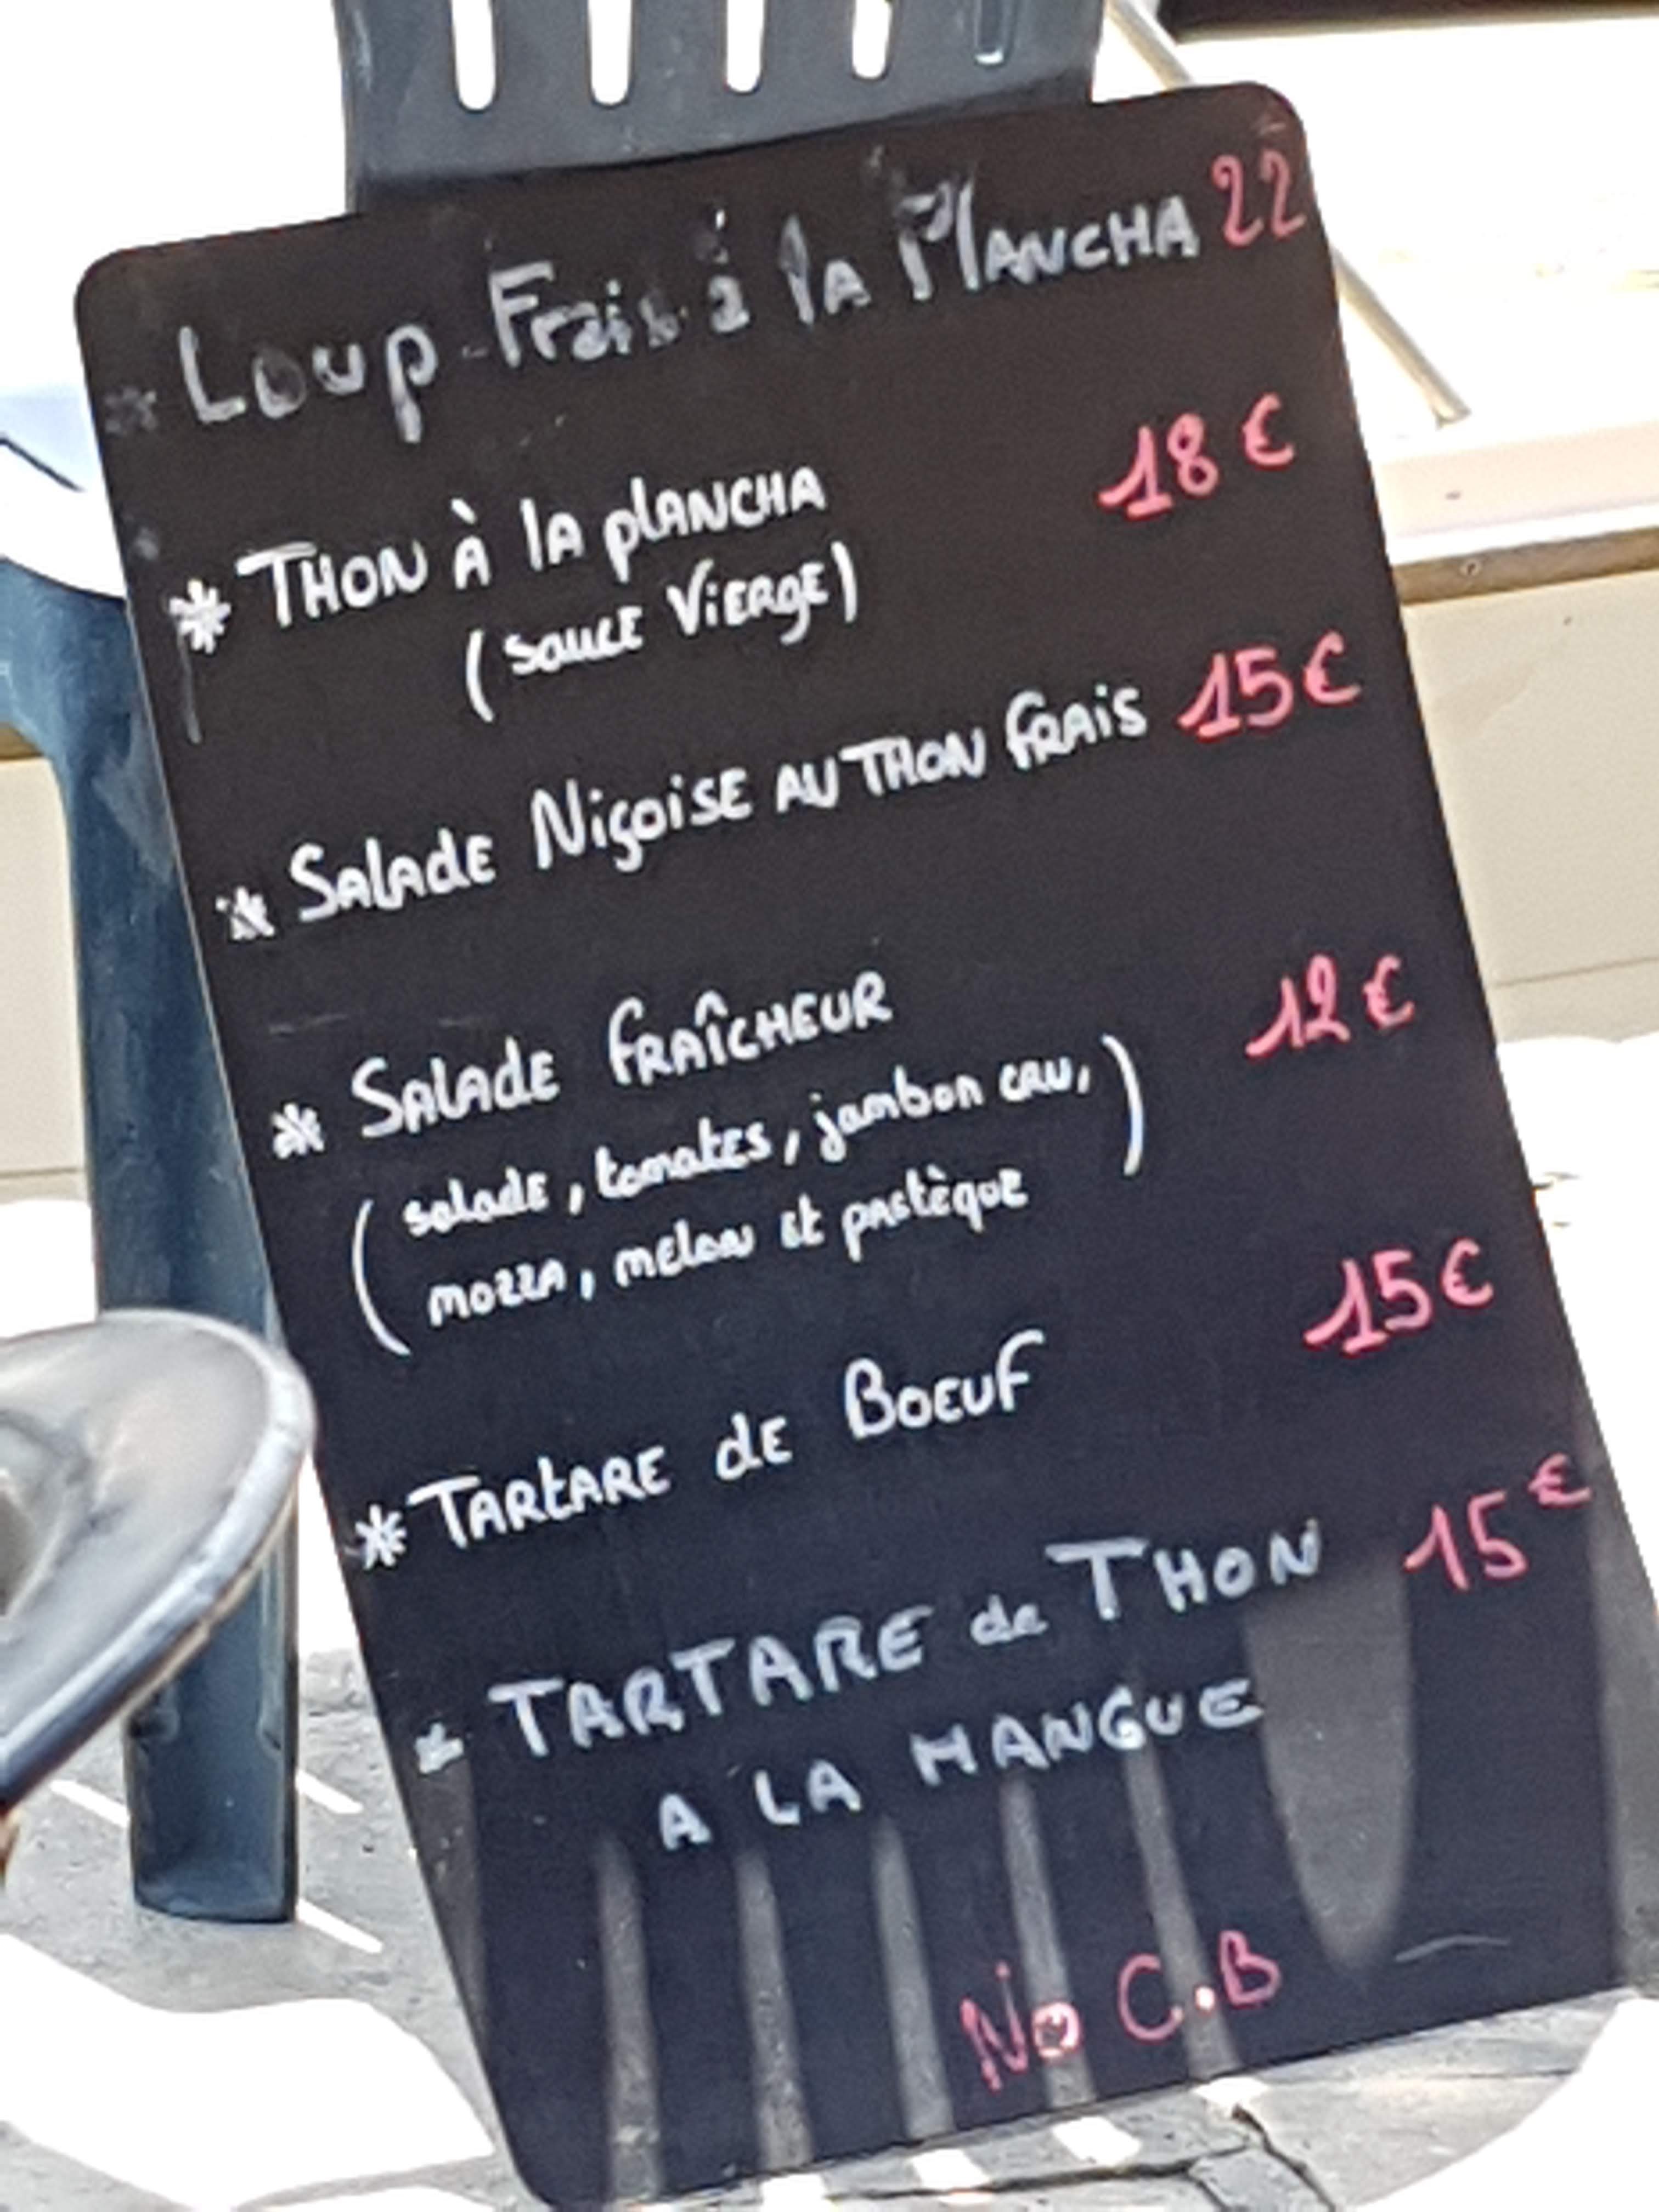 * Loup Frais à la Plancha 22
* THON À lA plANCHA 18€
(sauce Vierge)
* Salade Niçoise au Thon frais 15€
* Salade fraîcheur 12€
(salade, tomates, jambon cru,
mozza, melon et pastèque)
* Tartare de Boeuf 15€
* TARTARE de THON 15€
A LA MANGUE
No C.B